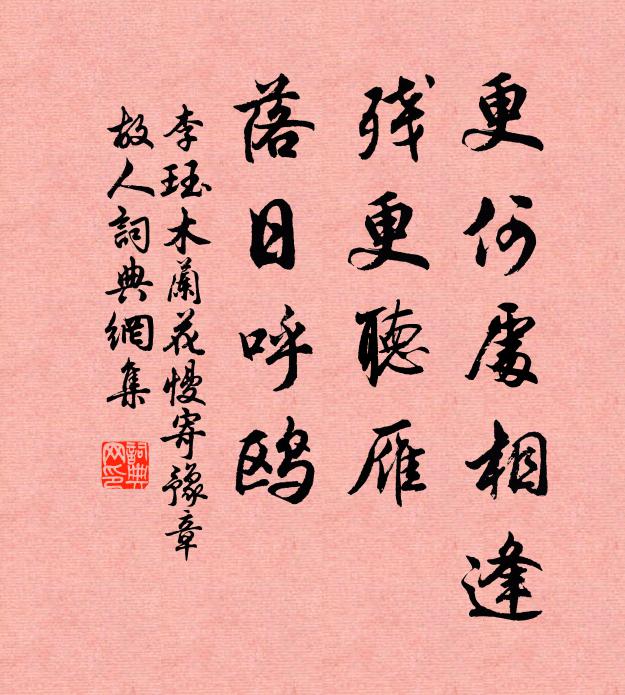 更何處相逢
殘更聽雁
落日呼鸥
李珏木蘭花慢寄豫章
故人詞典網集
詞典
网印